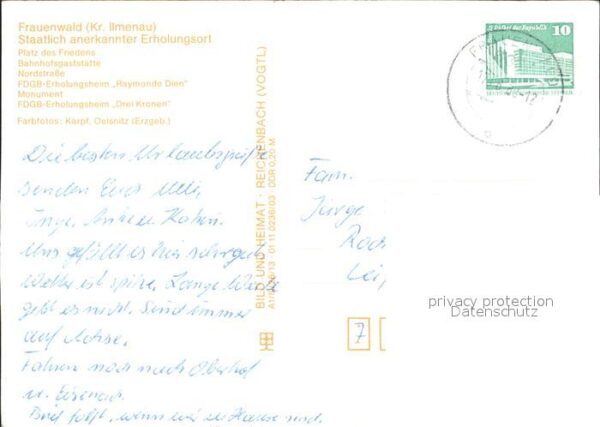 Frauenwald (Kr. Ilmenau)
Staatlich anerkannter Erholungsort
Platz des Friedens
Bahnhofsgaststätte
Nordstraße
FDGB-Erholungsheim „Raymonde Dien"
Monument
FDGB-Erholungsheim „Drei Kronen"
Farbfotos: Karpf, Oelsnitz (Erzgeb.)
Die besten Urlaubsgrüße
senden Euch Ulli,
Inge,
Uns gefällt es hier sehr gut
Wetter ist Lange Weile
gibt es nicht. Sind immer
auf Achse.
Fahren noch nach Oberhof
u. Eisenach
Brief folgt, wenn wir zu Hause sind.
BILD UND HEIMAT · REICHENBACH (VOGTL)
01 11 0236/03 DDR 0,20 M
Palast der Republik
10
DDR
Fam.
Jürge
Rach
Lei
7
privacy protection
Datenschutz